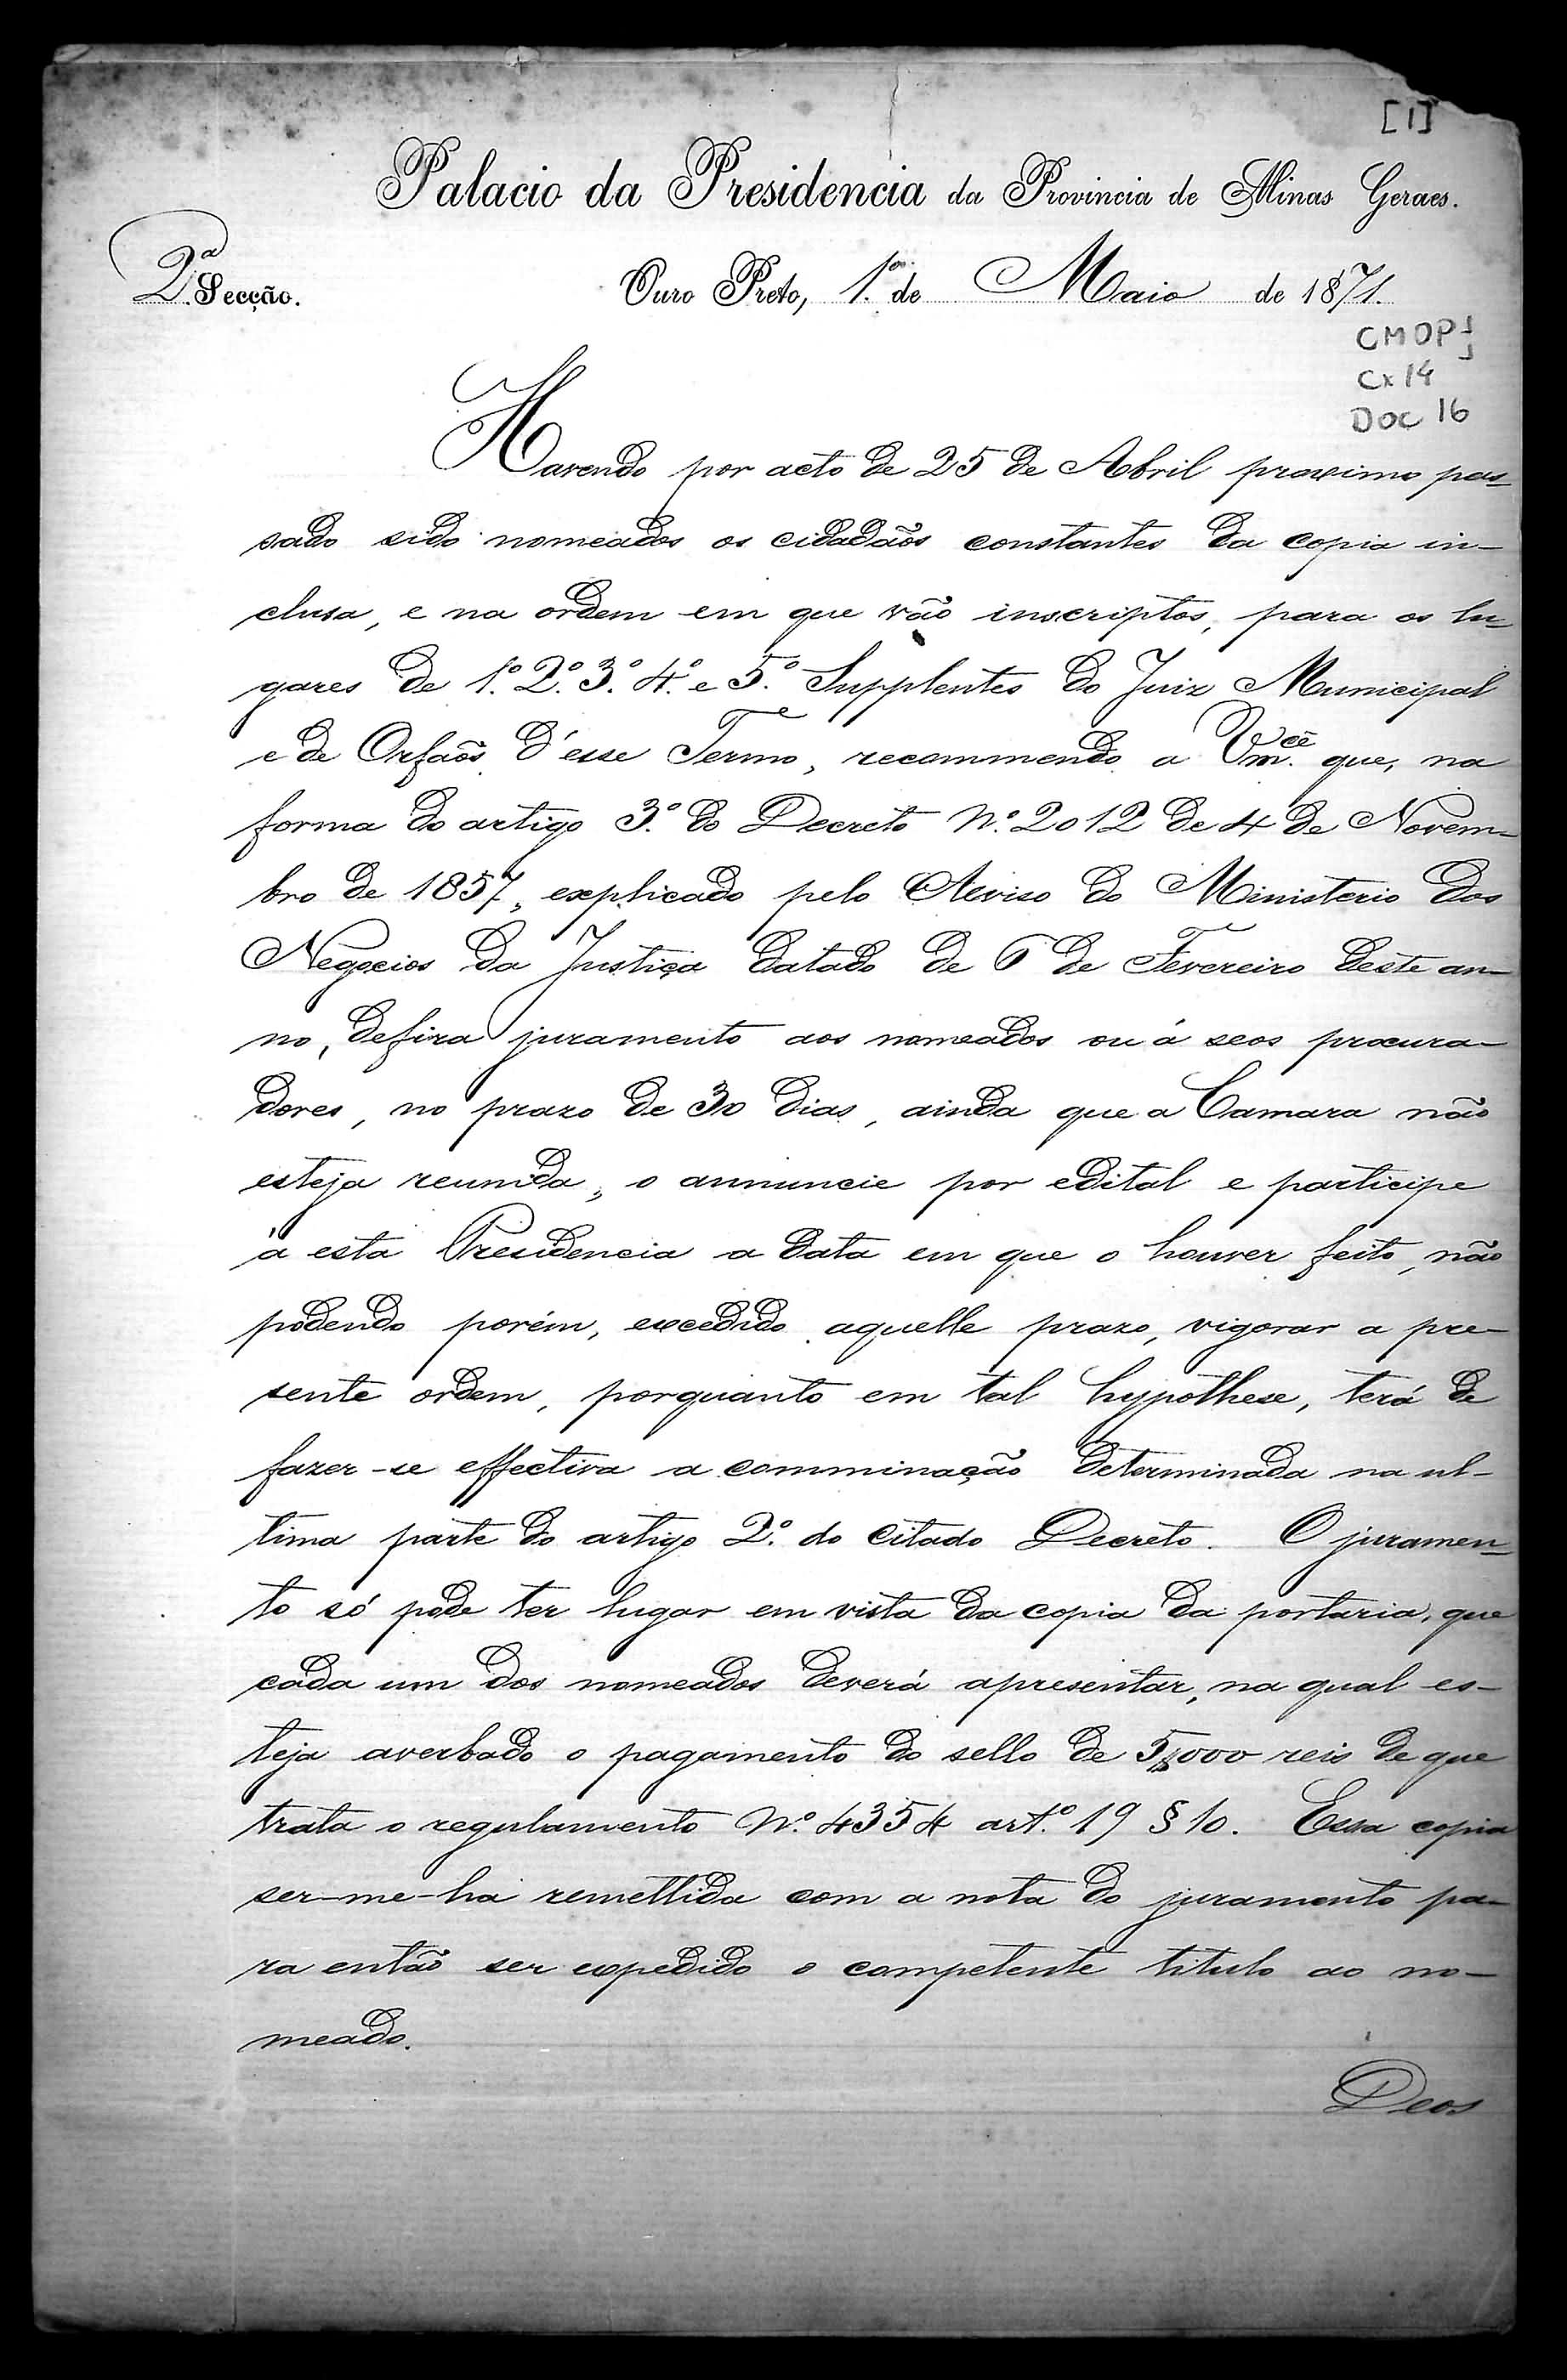 [1]
Palacio da Presidencia da Provincia de Minas Geraes.
2ª Secção.
Ouro Preto, 1.º de Maio de 1871.
CMOP
Cx 14
DOC 16
Havendo por acto de 25 de Abril proximo pas-
sado sido nomeados os cidadãos constantes da copia in-
clusa, e na ordem em que vão inscriptos, para os lu-
gares de 1.º 2.º 3.º 4.º e 5.º Supplentes do Juiz Municipal
e de Orfaõs d'esse Termo, recommendo a Vm.cê que, na
forma do artigo 3.º do Decreto N.º 2012 de 4 de Novem-
bro de 1857, explicado pelo Aviso do Ministerio dos
Negocios da Justiça datado de 6 de Fevereiro deste an-
no, defira juramento aos nomeados ou á seos procura-
dores, no prazo de 30 dias, ainda que a Camara não
esteja reunida, o annuncie por edital e participe
á esta Presidencia a data em que o houver feito, não
podendo porém, excedido aquelle prazo, vigorar a pre-
sente ordem, porquanto em tal hypothese, terá de
fazer-se effectiva a comminação determinada na ul-
tima parte do artigo 2.º do citado Decreto. O juramen-
to só pode ter lugar em vista da copia da portaria, que
cada um dos nomeados deverá apresentar, na qual es-
teja averbado o pagamento do sello de 5$000 reis de que
trata o regulamento N.º 4354 art.º 19 § 10. Essa copia
ser-me-há remettida com a nota do juramento pa-
ra então ser expedido o competente titulo ao no-
meado.
Deos